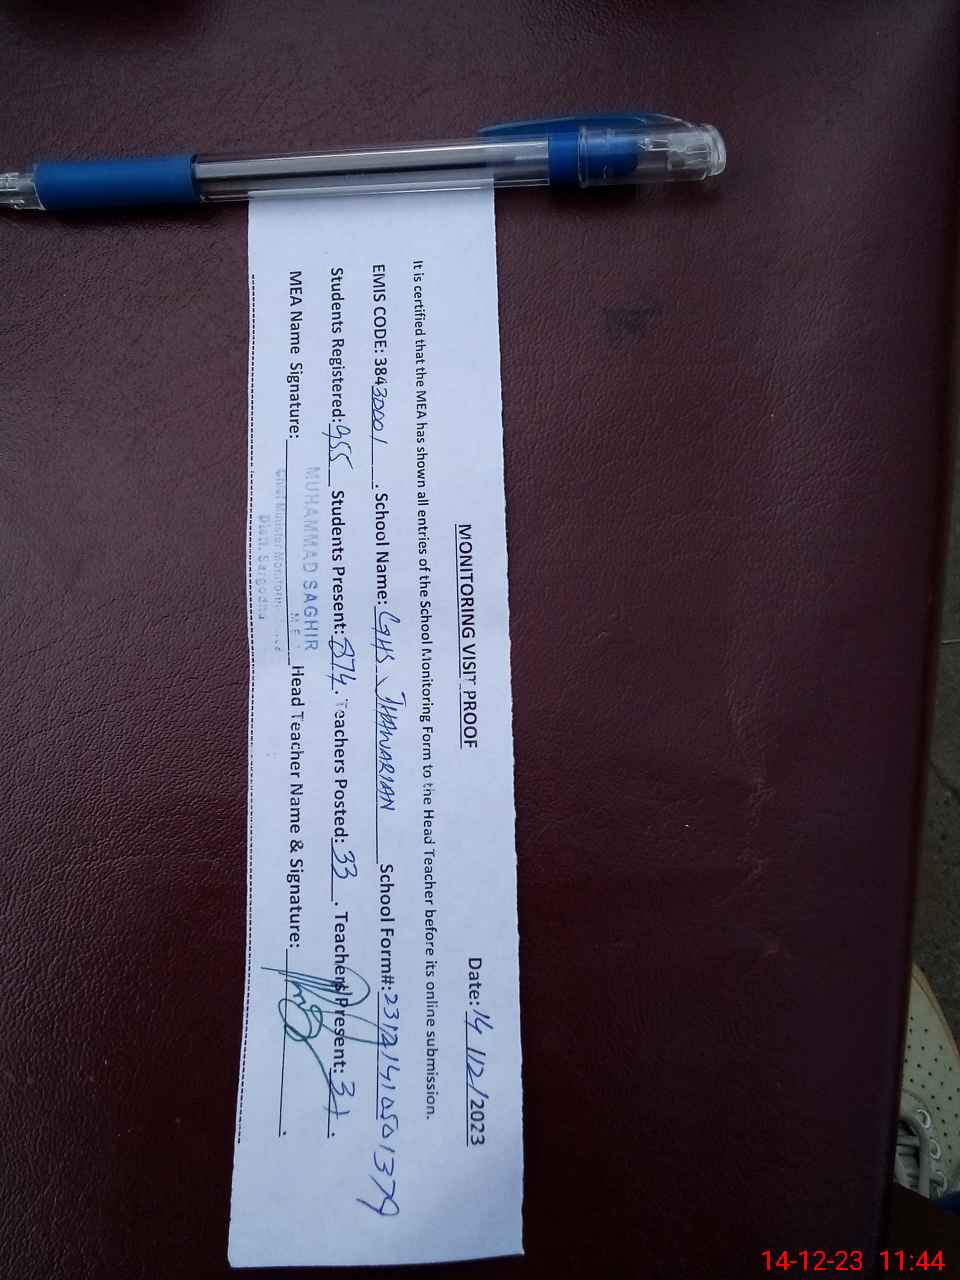 MONITORING VISIT PROOF
Date: 14/12/2023
It is certified that the MEA has shown all entries of the School Monitoring Form to the Head Teacher before its online submission.
EMIS CODE: 38430001. School Name: GHS JHAWARIAN School Form#: 23121410501379
Students Registered: 955 Students Present: 874. Teachers Posted: 33. Teachers Present:
MEA Name Signature: Head Teacher Name & Signature:
MUHAMMAD SAGHIR
Chief Minister Monitoring
Distt. Sargodha
14-12-23 11:44